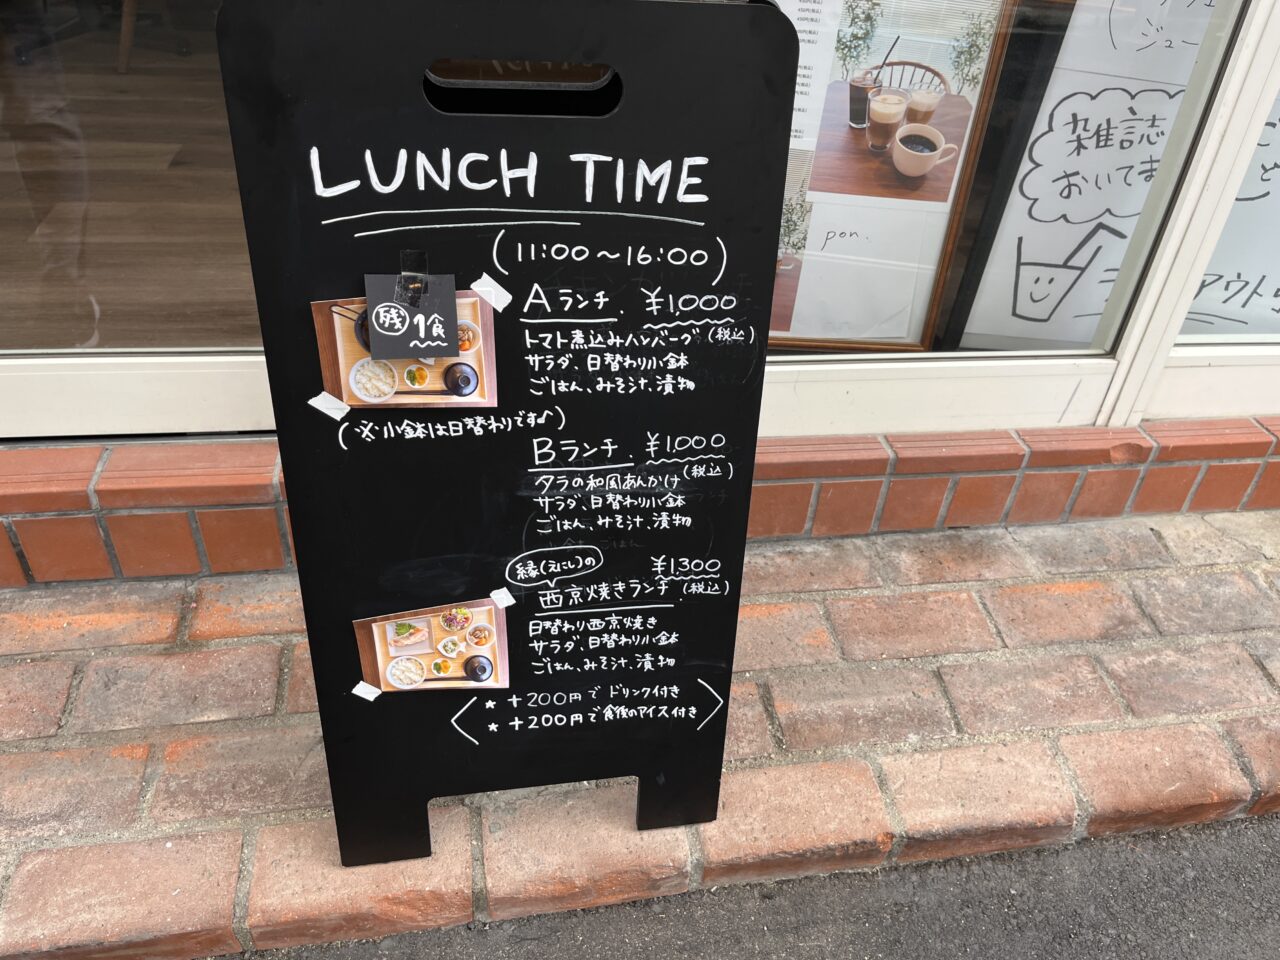 LUNCH TIME
(11:00～16:00)
Aランチ. ¥1,000
(税込)
トマト煮込みハンバーグ
サラダ、日替わり小鉢
ごはん、みそ汁、漬物
残 1食
(※小鉢は日替わりです♪)
Bランチ. ¥1,000
(税込)
タラの和風あんかけ
サラダ、日替わり小鉢
ごはん、みそ汁、漬物
縁(えにし)の
西京焼きランチ. ¥1,300
(税込)
日替わり西京焼き
サラダ、日替わり小鉢
ごはん、みそ汁、漬物
★ +200円で ドリンク付き
★ +200円で食後のアイス付き
pon.
ジュー
雑誌
おいてま
アウト